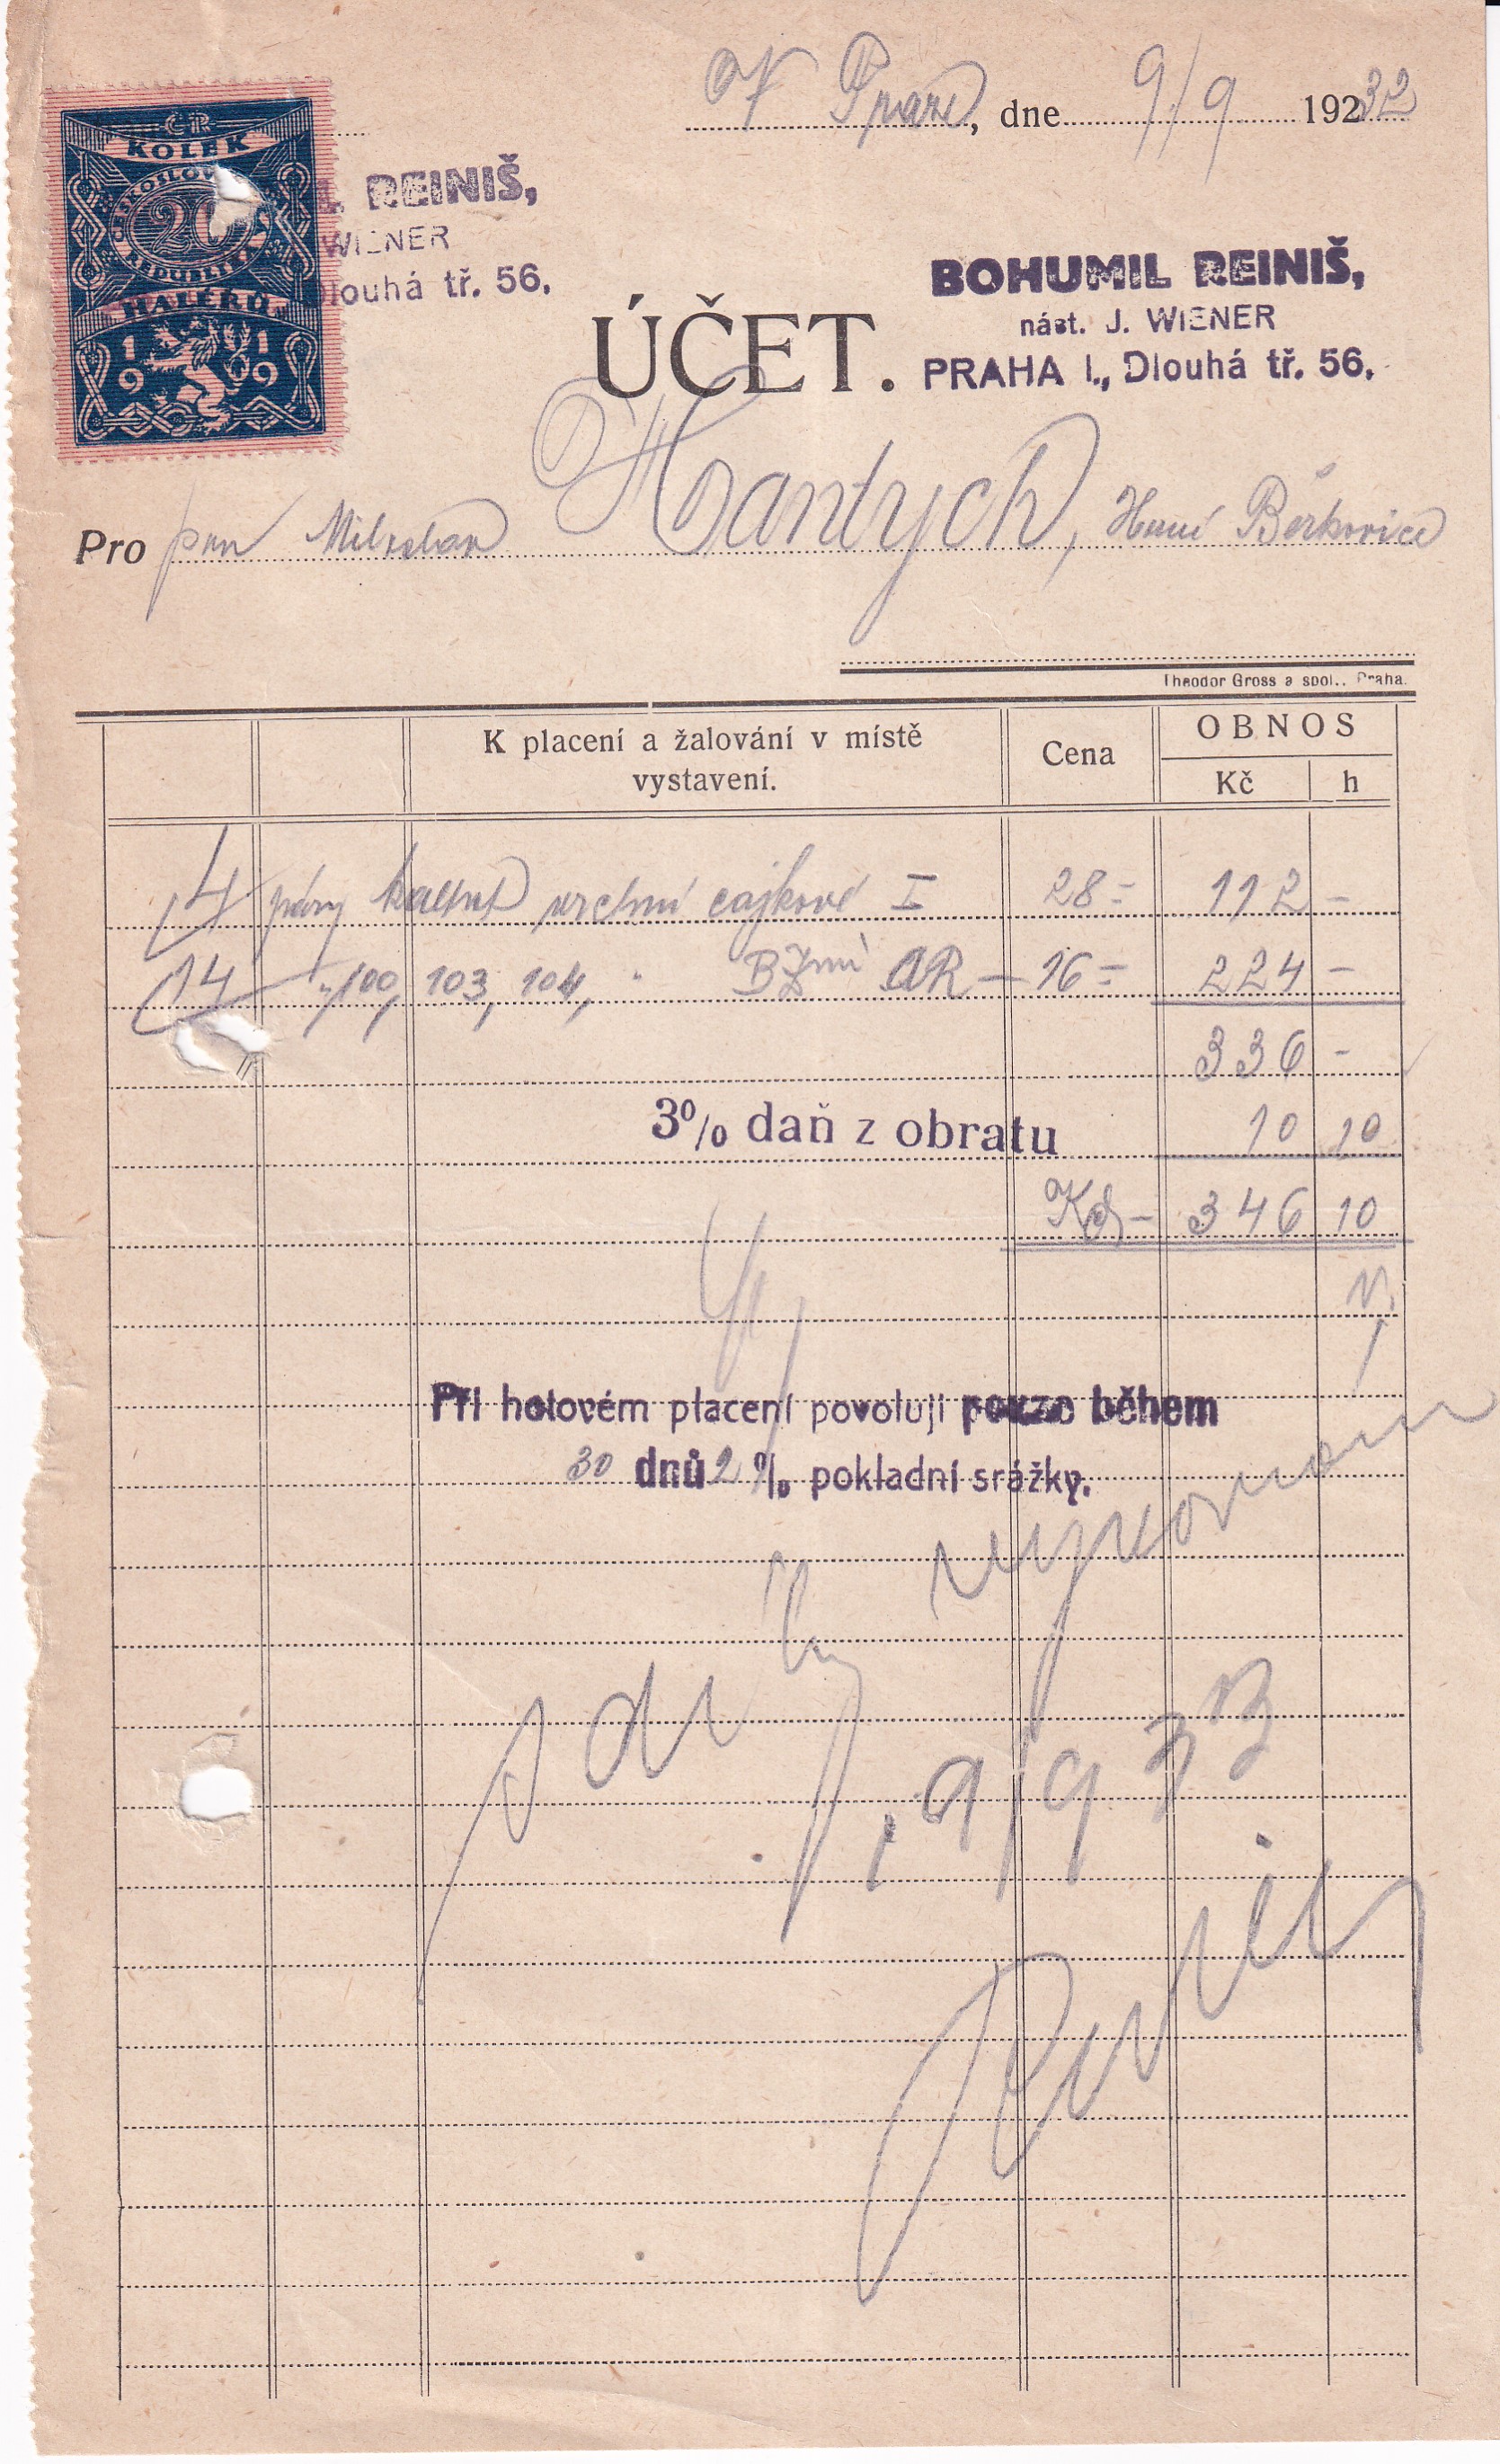 V Praze, dne 9/9 192 32
ČR
KOLEK
20
REPUBLIKA
HALÉŘŮ
1919
REINIŠ,
WIENER
Dlouhá tř. 56.
BOHUMIL REINIŠ,
nást. J. WIENER
PRAHA I., Dlouhá tř. 56.
ÚČET.
Pro pan Miloslav Hantych, Horní Beřkovice
Theodor Gross a spol., Praha.
K placení a žalování v místě
vystavení.
Cena
OBNOS
Kč h
4 páry kalhot vrchní cajkové I 28= 112 -
14 " 100, 103, 104, " AR - 16= 224 -
336 -
3% daň z obratu 10 10
Kč- 346 10
Při hotovém placení povoluji pouze během
30 dnů 2 % pokladní srážky.
vyrovnání
díky
9/9 33
Reiniš